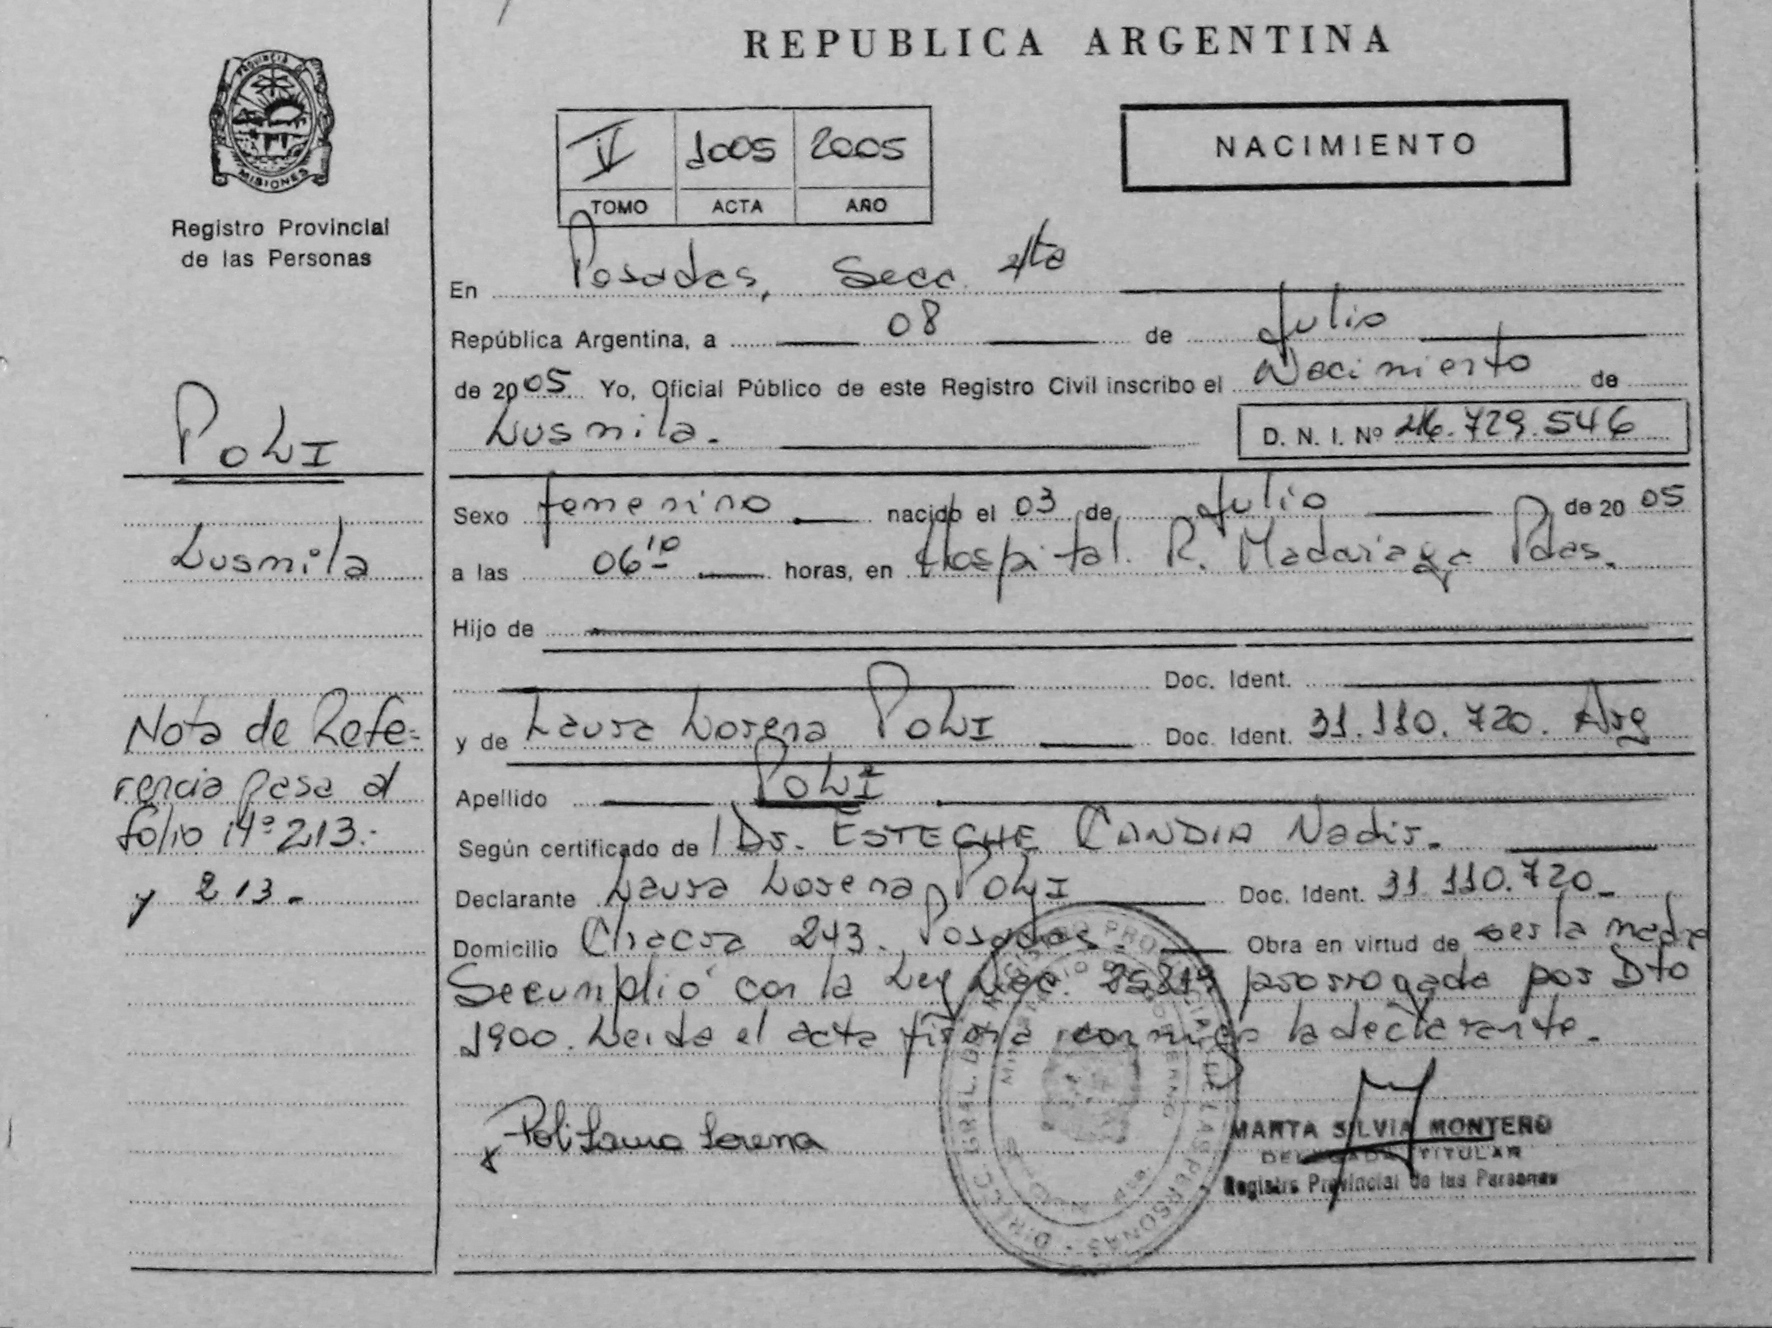 REPUBLICA ARGENTINA
PROVINCIA DE
MISIONES
Registro Provincial
de las Personas
IV 1005 2005
TOMO ACTA AÑO
NACIMIENTO
En Posadas, Secc. 4ta
República Argentina, a 08 de Julio
de 2005. Yo, Oficial Público de este Registro Civil inscribo el Nacimiento de
Lusmila. D. N. I. Nº 46.729.546
POLI
Lusmila
Sexo femenino nacido el 03 de Julio de 2005
a las 06 10 horas, en Hospital. R. Madariaga Pdas.
Hijo de
Doc. Ident.
y de Laura Lorena POLI Doc. Ident. 31.110.720. Arg
Apellido POLI
Según certificado de Dr. ESTECHE CANDIA Nadir.
Declarante Laura Lorena POLI Doc. Ident. 31.110.720
Domicilio Chacra 243. Posadas. Obra en virtud de ser la madre
Se cumplió con la Ley Nac. prorrogada por Dto
1900. Leida el acta firma conmigo la declarante.
Nota de Refe-
rencia pasa al
folio Nº 213.-
y 213-
x Poli Laura Lorena
MARTA SILVIA MONTERO
DELEGADA TITULAR
Registro Provincial de las Personas